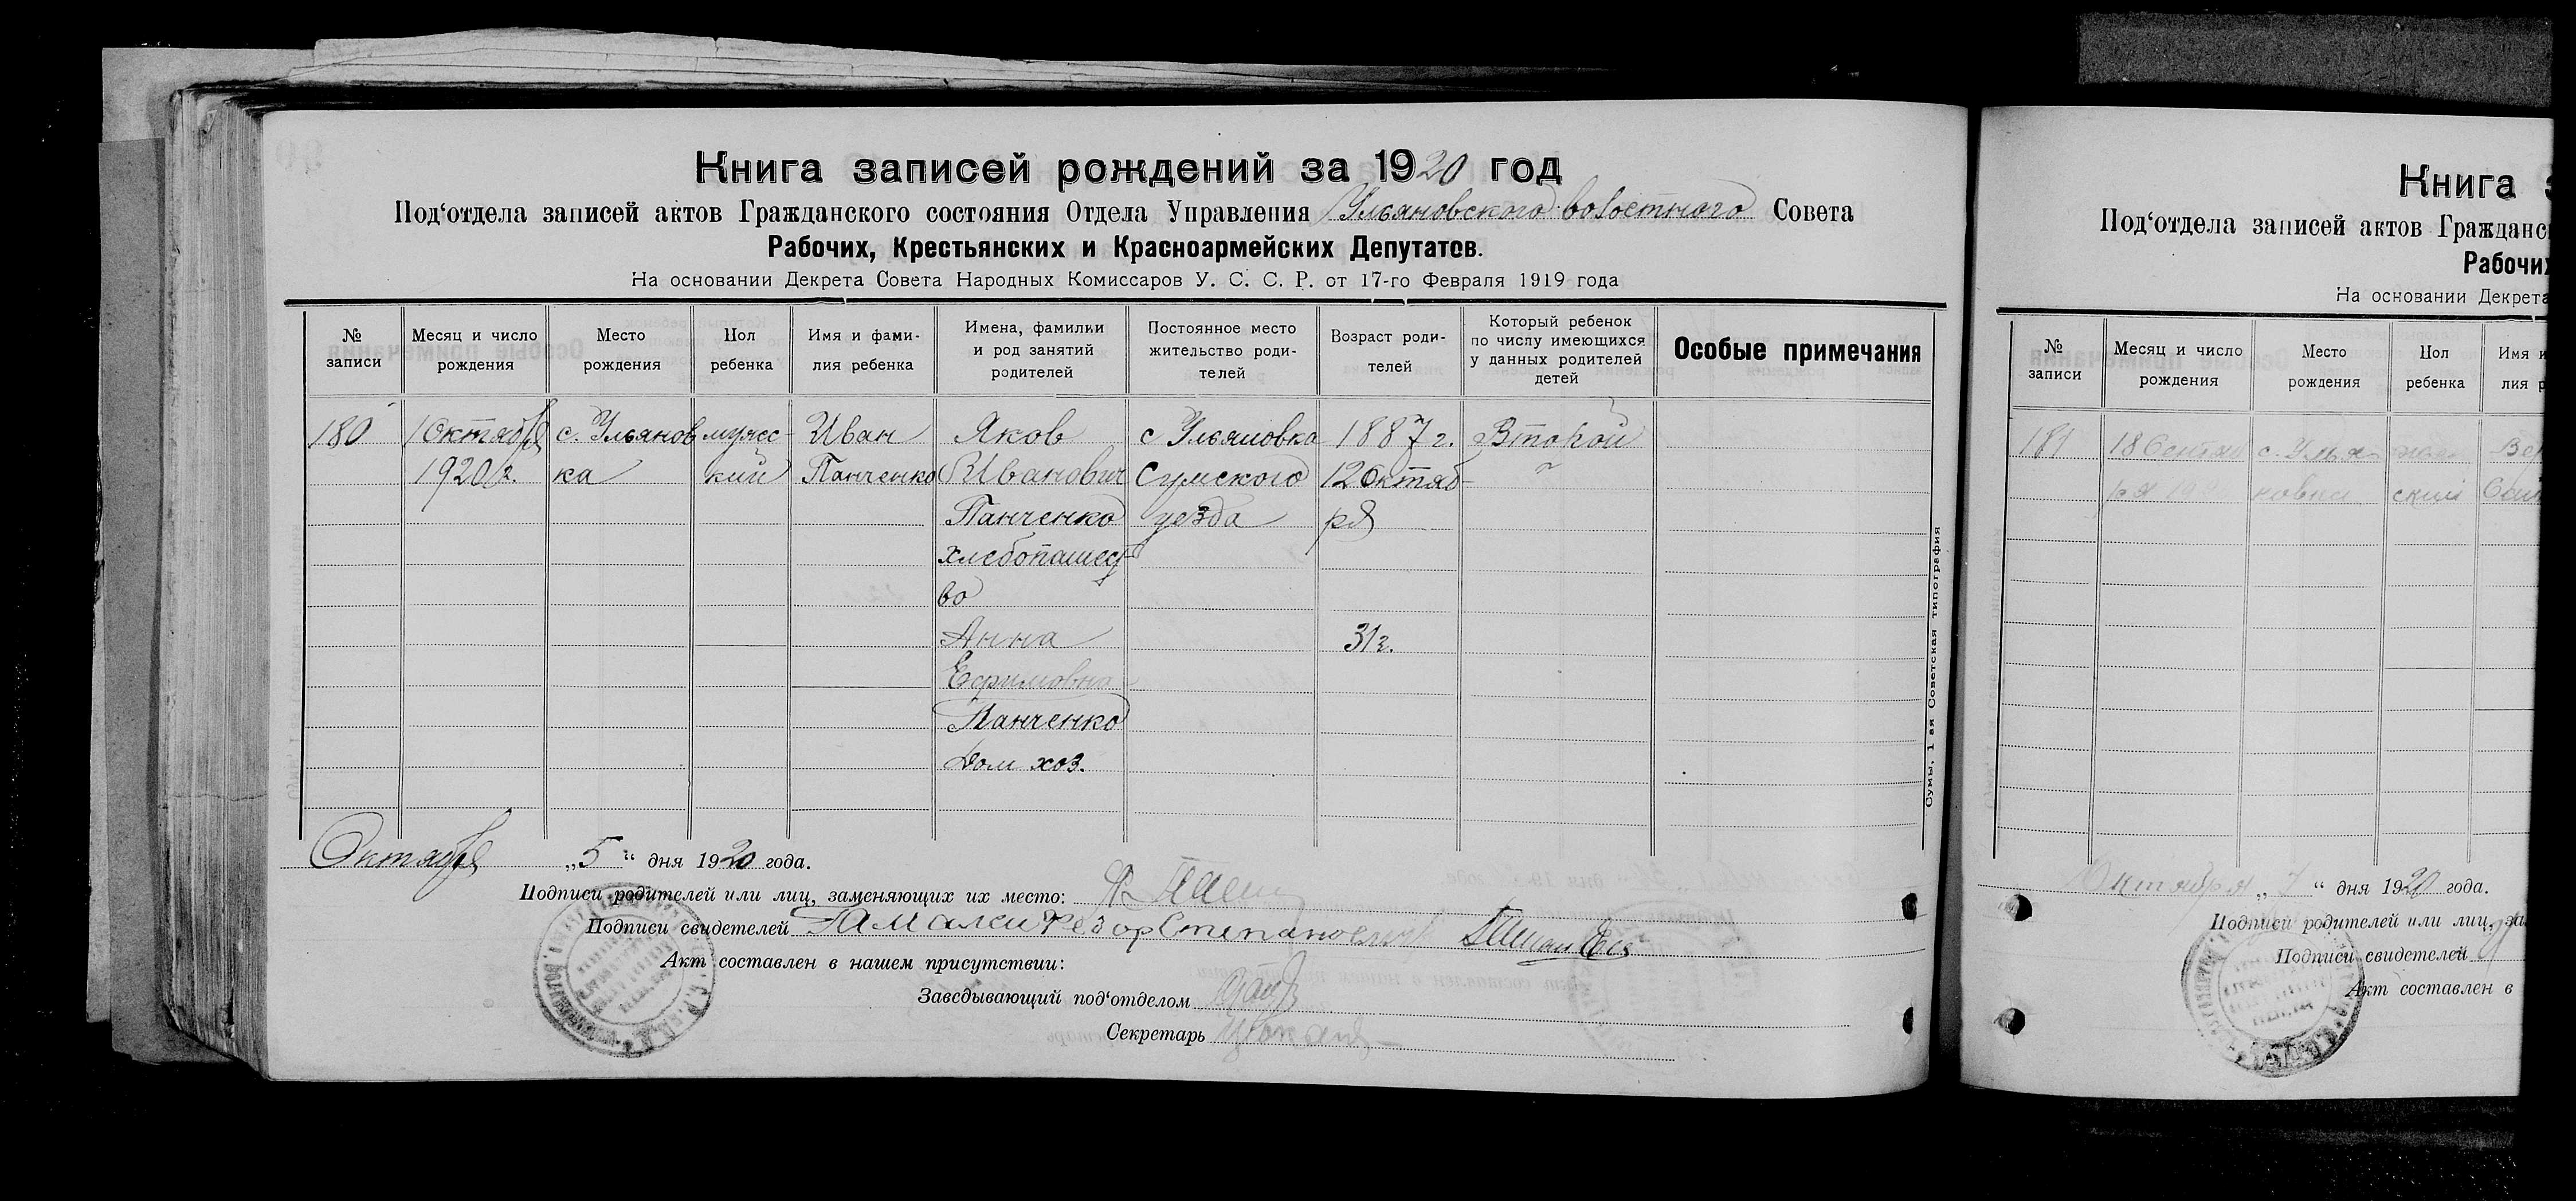 Книга записей рождений за 1920 год
Под‘отдела записей актов Гражданского состояния Отдела Управления Ульяновского волостного Совета
Рабочих, Крестьянских и Красноармейских Депутатов.
На основании Декрета Совета Народных Комиссаров У. С. С. Р. от 17-го Февраля 1919 года
№ записи
Месяц и число рождения
Место рождения
Пол ребенка
Имя и фами-
лия ребенка
Имена, фамилии
и род занятий
родителей
Постоянное место
жительство роди-
телей
Возраст роди-
телей
Который ребенок
по числу имеющихся
у данных родителей
детей
Особые примечания
180 1 Октября с. Ульянов мужес- Иван Яков с Ульяновка 1887 г. Второй
1920 г. ка кий Панченко Иванович Сумского 12 Октяб-
Панченко уезда ря
хлебопашест
во
Анна 31 г.
Ефимовна
Панченко
Дом хоз.
Сумы, 1 ая Советская типография
Октября „5“ дня 1920 года.
Подписи родителей или лиц, заменяющих их место:
Подписи свидетелей
Акт составлен в нашем присутствии:
Заведывающий под‘отделом
Секретарь
Книга
Под‘отдела записей актов Гражданс
Рабочих
На основании Декрета
№ записи
Месяц и число рождения
Место рождения
Пол ребенка
Имя и
лия р
181 18 с. Улья- Вер
ря новка ский
Октября „7“ дня 1920 года.
Подписи родителей или лиц, за
Подписи свидетелей
Акт составлен в